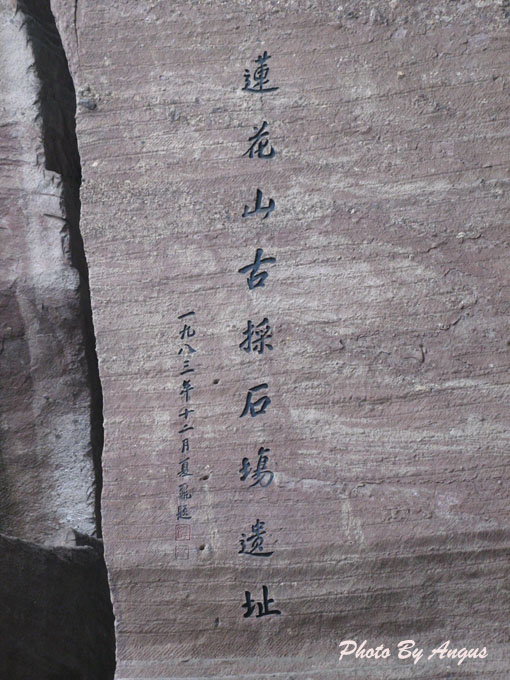 蓮花山古採石場遺址
一九八三年十二月夏鼐題
Photo By Angus